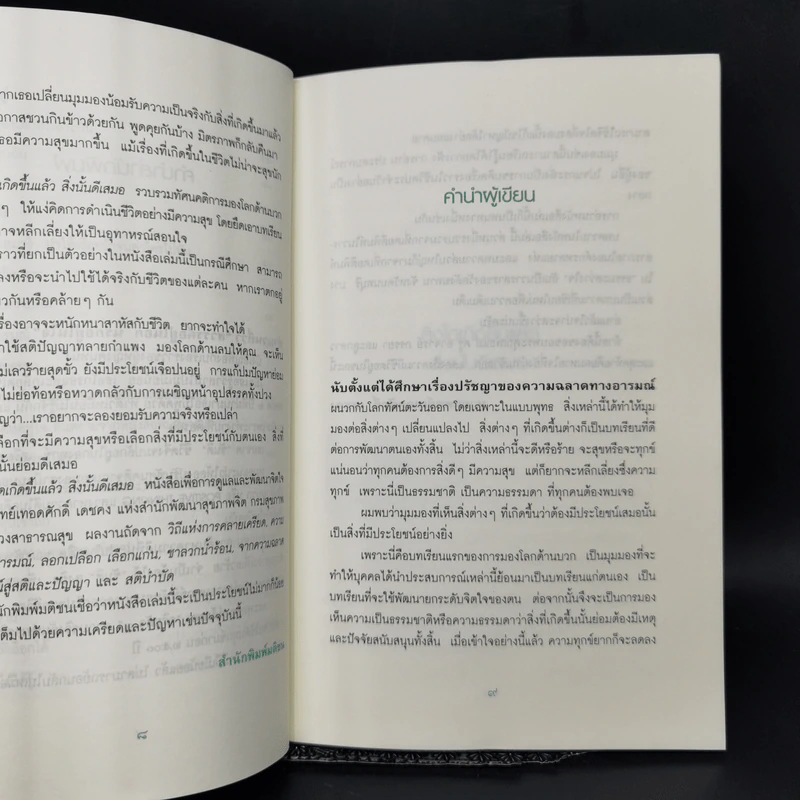 ากเธอเปลี่ยนมุมมองน้อมรับความเป็นจริงกับสิ่งที่เกิดขึ้นมาแล้ว
อกาสชวนกินข้าวด้วยกัน พูดคุยกันบ้าง มิตรภาพก็กลับคืนมา
ธอมีความสุขมากขึ้น แม้เรื่องที่เกิดขึ้นในชีวิตไม่น่าจะสุขนัก
เกิดขึ้นแล้ว สิ่งนั้นดีเสมอ รวบรวมทัศนคติการมองโลกด้านบวก
ๆ ให้แง่คิดการดำเนินชีวิตอย่างมีความสุข โดยยึดเอาบทเรียน
าจหลีกเลี่ยงให้เป็นอุทาหรณ์สอนใจ
ราวที่ยกเป็นตัวอย่างในหนังสือเล่มนี้เป็นกรณีศึกษา สามารถ
ลงหรือจะนำไปใช้ได้จริงกับชีวิตของแต่ละคน หากเราตกอยู่
ยวกันหรือคล้ายๆ กัน
รื่องอาจจะหนักหนาสาหัสกับชีวิต ยากจะทำใจได้
าใช้สติปัญญาทลายกำแพง มองโลกด้านลบให้คุณ จะเห็น
มเลวร้ายสุดขั้ว ยังมีประโยชน์เจือปนอยู่ การแก้ปมปัญหาย่อม
ไม่ย่อท้อหรือหวาดกลัวกับการเผชิญหน้าอุปสรรคทั้งปวง
ญว่า...เราอยากจะลองยอมรับความจริงหรือเปล่า
ลือกที่จะมีความสุขหรือเลือกสิ่งที่มีประโยชน์กับตนเอง สิ่งที่
นั้นย่อมดีเสมอ
ดเกิดขึ้นแล้ว สิ่งนั้นดีเสมอ หนังสือเพื่อการดูแลและพัฒนาจิตใจ
ทย์เทอดศักดิ์ เดชคง แห่งสำนักพัฒนาสุขภาพจิต กรมสุขภาพ
วงสาธารณสุข ผลงานถัดจาก วิถีแห่งการคลายเครียด, ความ
ารมณ์, ลอกเปลือก เลือกแก่น, ชาลวกน้ำร้อน, จากความฉลาด
ณ์สู่สติและปัญญา และ สติบำบัด
นักพิมพ์มติชนเชื่อว่าหนังสือเล่มนี้จะเป็นประโยชน์ไม่มากก็น้อย
ต็มไปด้วยความเครียดและปัญหาเช่นปัจจุบันนี้
สำนักพิมพ์มติชน
๘
คำนำผู้เขียน
นับตั้งแต่ได้ศึกษาเรื่องปรัชญาของความฉลาดทางอารมณ์
ผนวกกับโลกทัศน์ตะวันออก โดยเฉพาะในแบบพุทธ สิ่งเหล่านี้ได้ทำให้มุม
มองต่อสิ่งต่างๆ เปลี่ยนแปลงไป สิ่งต่างๆ ที่เกิดขึ้นต่างก็เป็นบทเรียนที่ดี
ต่อการพัฒนาตนเองทั้งสิ้น ไม่ว่าสิ่งเหล่านี้จะดีหรือร้าย จะสุขหรือจะทุกข์
แน่นอนว่าทุกคนต้องการสิ่งดีๆ มีความสุข แต่ก็ยากจะหลีกเลี่ยงซึ่งความ
ทุกข์ เพราะนี่เป็นธรรมชาติ เป็นความธรรมดา ที่ทุกคนต้องพบเจอ
ผมพบว่ามุมมองที่เห็นสิ่งต่างๆ ที่เกิดขึ้นว่าต้องมีประโยชน์เสมอนั้น
เป็นสิ่งที่มีประโยชน์อย่างยิ่ง
เพราะนี่คือบทเรียนแรกของการมองโลกด้านบวก เป็นมุมมองที่จะ
ทำให้บุคคลได้นำประสบการณ์เหล่านี้ย้อนมาเป็นบทเรียนแก่ตนเอง เป็น
บทเรียนที่จะใช้พัฒนายกระดับจิตใจของตน ต่อจากนั้นจึงจะเป็นการมอง
เห็นความเป็นธรรมชาติหรือความธรรมดาว่าสิ่งที่เกิดขึ้นนั้นย่อมต้องมีเหตุ
และปัจจัยสนับสนุนทั้งสิ้น เมื่อเข้าใจอย่างนี้แล้ว ความทุกข์ยากก็จะลดลง
๙